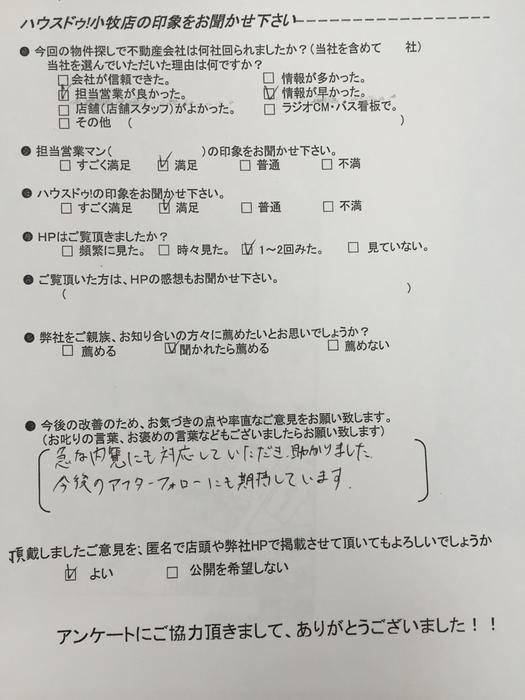 ハウスドゥ!小牧店の印象をお聞かせ下さい
今回の物件探しで不動産会社は何社回られましたか?(当社を含めて 社)
当社を選んでいただいた理由は何ですか?
□会社が信頼できた。 □ 情報が多かった。
☑ 担当営業が良かった。 ☑ 情報が早かった。
□ 店舗(店舗スタッフ)がよかった。 □ ラジオCM・バス看板で。
□ その他 ( )
担当営業マン( )の印象をお聞かせ下さい。
□ すごく満足 ☑ 満足 □ 普通 □ 不満
ハウスドゥ!の印象をお聞かせ下さい。
□ すごく満足 ☑ 満足 □ 普通 □ 不満
HPはご覧頂きましたか?
□ 頻繁に見た。 □ 時々見た。 ☑ 1~2回みた。 □ 見ていない。
ご覧頂いた方は、HPの感想もお聞かせ下さい。
( )
弊社をご親族、お知り合いの方々に薦めたいとお思いでしょうか?
□ 薦める ☑聞かれたら薦める □ 薦めない
今後の改善のため、お気づきの点や率直なご意見をお願い致します。
(お叱りの言葉、お褒めの言葉などもございましたらお願い致します)
急な内覧にも対応していただき、助かりました。
今後のアフターフォローにも期待しています。
頂戴しましたご意見を、匿名で店頭や弊社HPで掲載させて頂いてもよろしいでしょうか
☑ よい □ 公開を希望しない
アンケートにご協力頂きまして、ありがとうございました!!